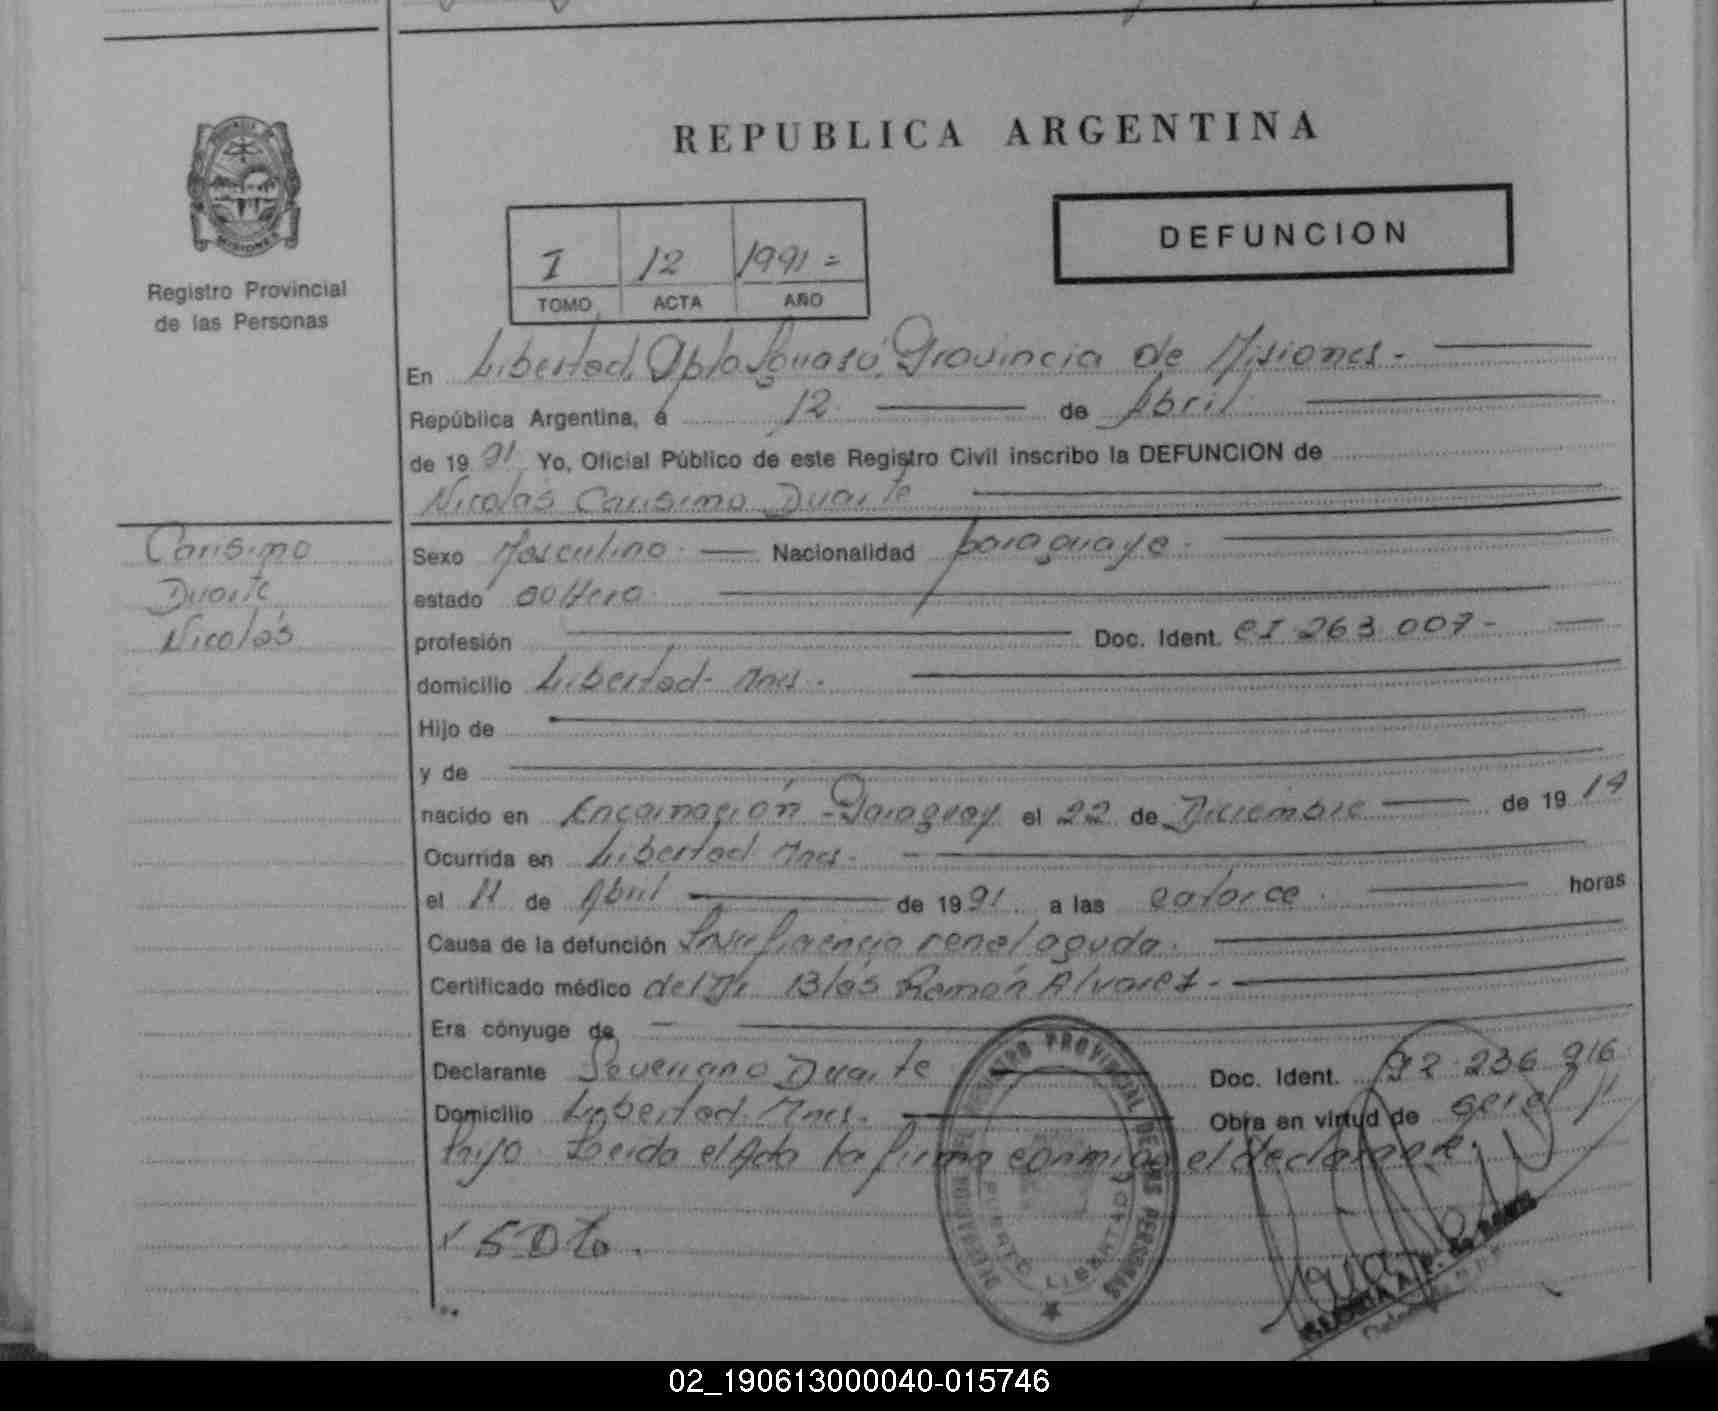 REPUBLICA ARGENTINA
DEFUNCION
I 12 1991=
TOMO ACTA AÑO
Registro Provincial
de las Personas
En Libertad, Dpto Iguasú Provincia de Misiones.-
República Argentina, á 12 de Abril
de 19 91 Yo, Oficial Público de este Registro Civil inscribo la DEFUNCION de
Nicolás Carisimo Duarte
Carisimo
Duarte
Nicolás
Sexo Masculino. Nacionalidad paraguaya.
estado soltero
profesión Doc. Ident. CI 263 007-
domicilio Libertad- Mnes.
Hijo de
y de
nacido en Encarnación -Paraguay el 22 de Diciembre de 19 14
Ocurrida en Libertad Mnes.
el 11 de Abril de 19 91 a las catorce. horas
Causa de la defunción Insuficiencia renal aguda.
Certificado médico del Dr Blás Ramón Alvarez.
Era cónyuge de
Declarante Severiano Duarte Doc. Ident. 92 236 916
Domicilio Libertad. Mnes. Obra en virtud de ser el
hijo Leida el Acta la firma conmigo el declarante.
REGISTRO PROVINCIAL DE LAS PERSONAS
LIBERTAD
02_190613000040-015746